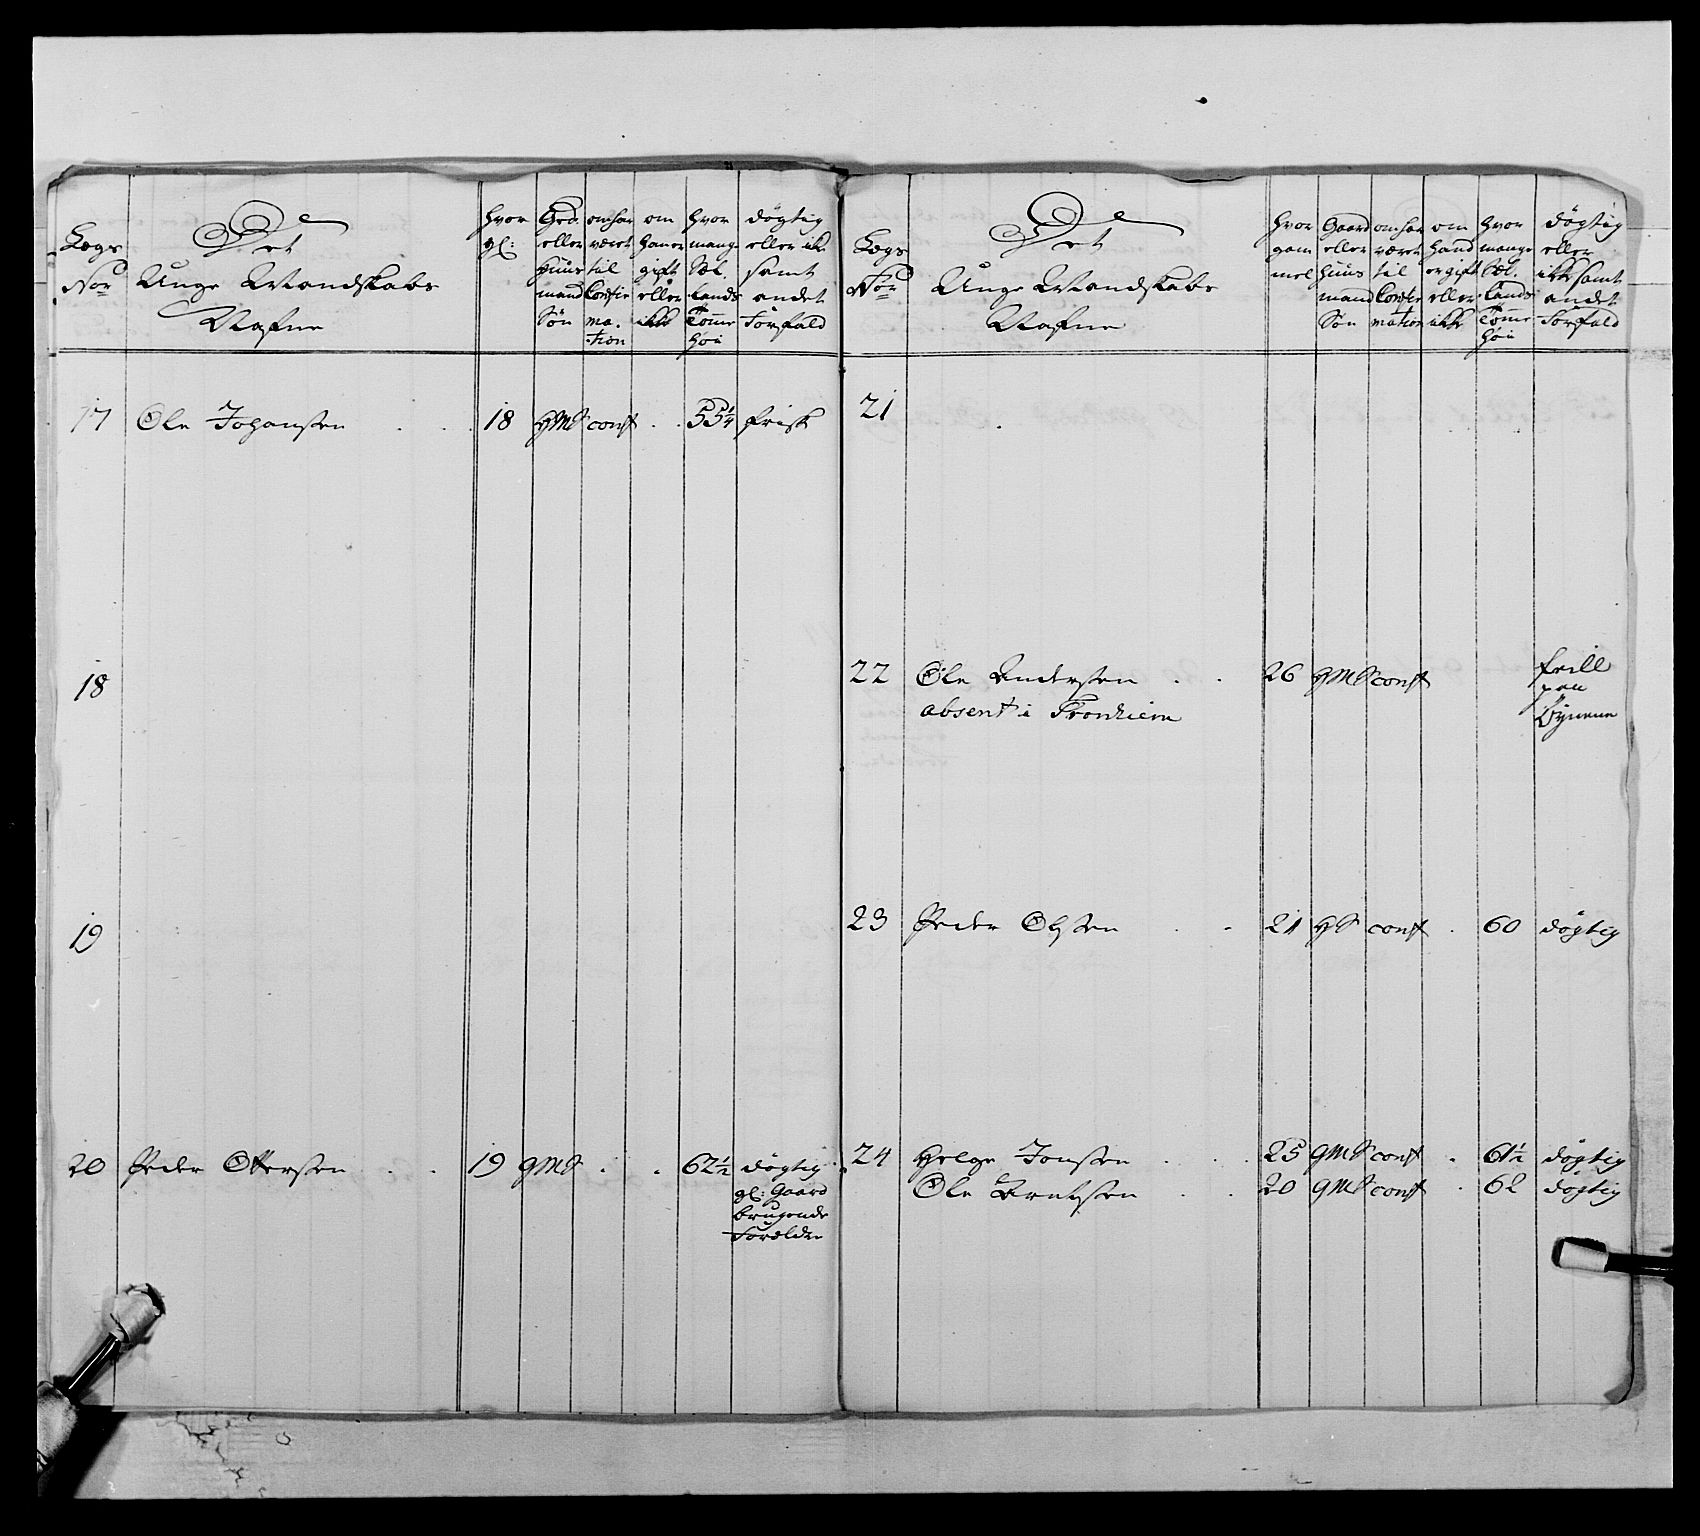 Lægs
Nor
Det
Unge Mandskabs
Nafne
hvor
gl:
Grd.
eller
Huus
mand
Søn
om har
været
til
Confir
ma-
tion
om
han er
gift
eller
ikke
hvor
mange
Sæl.
Lands
Tomme
høi
døgtig
eller ikke
samt
andet
Forfald
17 Ole Johansen 18 HMS conf 55 1/4 frisk
18
19
20 Peder Ottersen 19 GMS 62 1/2 døgtig
gl: Gaard
brugende
Forældre
Lægs
Nor
Det
Unge Mandskabs
Nafne
hvor
gam
mel
Gaard
eller
Huus
mand
Søn
om har
været
til
Confir
mation
om
hand
er gift
eller
ikke
hvor
mange
Sæl.
Lands
Tomme
høi
døgtig
eller
ikke samt
andet
Forfald
21
22 Ole Andersen 26 HMS conf feill
paa
Øynene
absent i Tronhiem
23 Peder Olsen 21 HS conf 60 døgtig
24 Helge Jonsen 25 GMS conf 61 1/2 døgtig
Ole Berntsen 20 GMS conf 62 døgtig